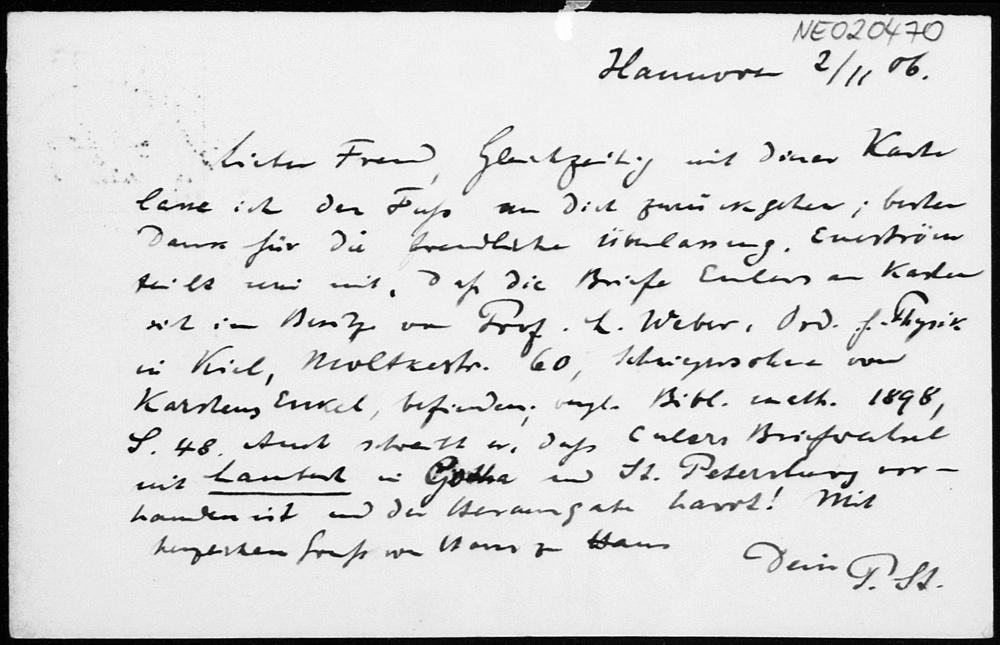 NE020470
Hannover 2/11 06.
Lieber Freund, Gleichzeitig mit Deiner Karte
lasse ich den Fuss an Dich zurückgehen; besten
Dank für die freundliche Überlassung. Eneström
teilt mir mit, daß die Briefe Eulers an Karsten
sich im Besitze von Prof. L. Weber, Ord. f. Physik
in Kiel, Moltkestr. 60, Schwiegersohne von
Karstens Enkel, befinden; vergl. Bibl. math. 1898,
S. 48. Auch schreibt er, daß Eulers Briefwechsel
mit Lambert in Gotha und St. Petersburg vor-
handen ist und der Herausgabe harrt! Mit
herzlichem Gruß von Haus zu Haus
Dein P. St.